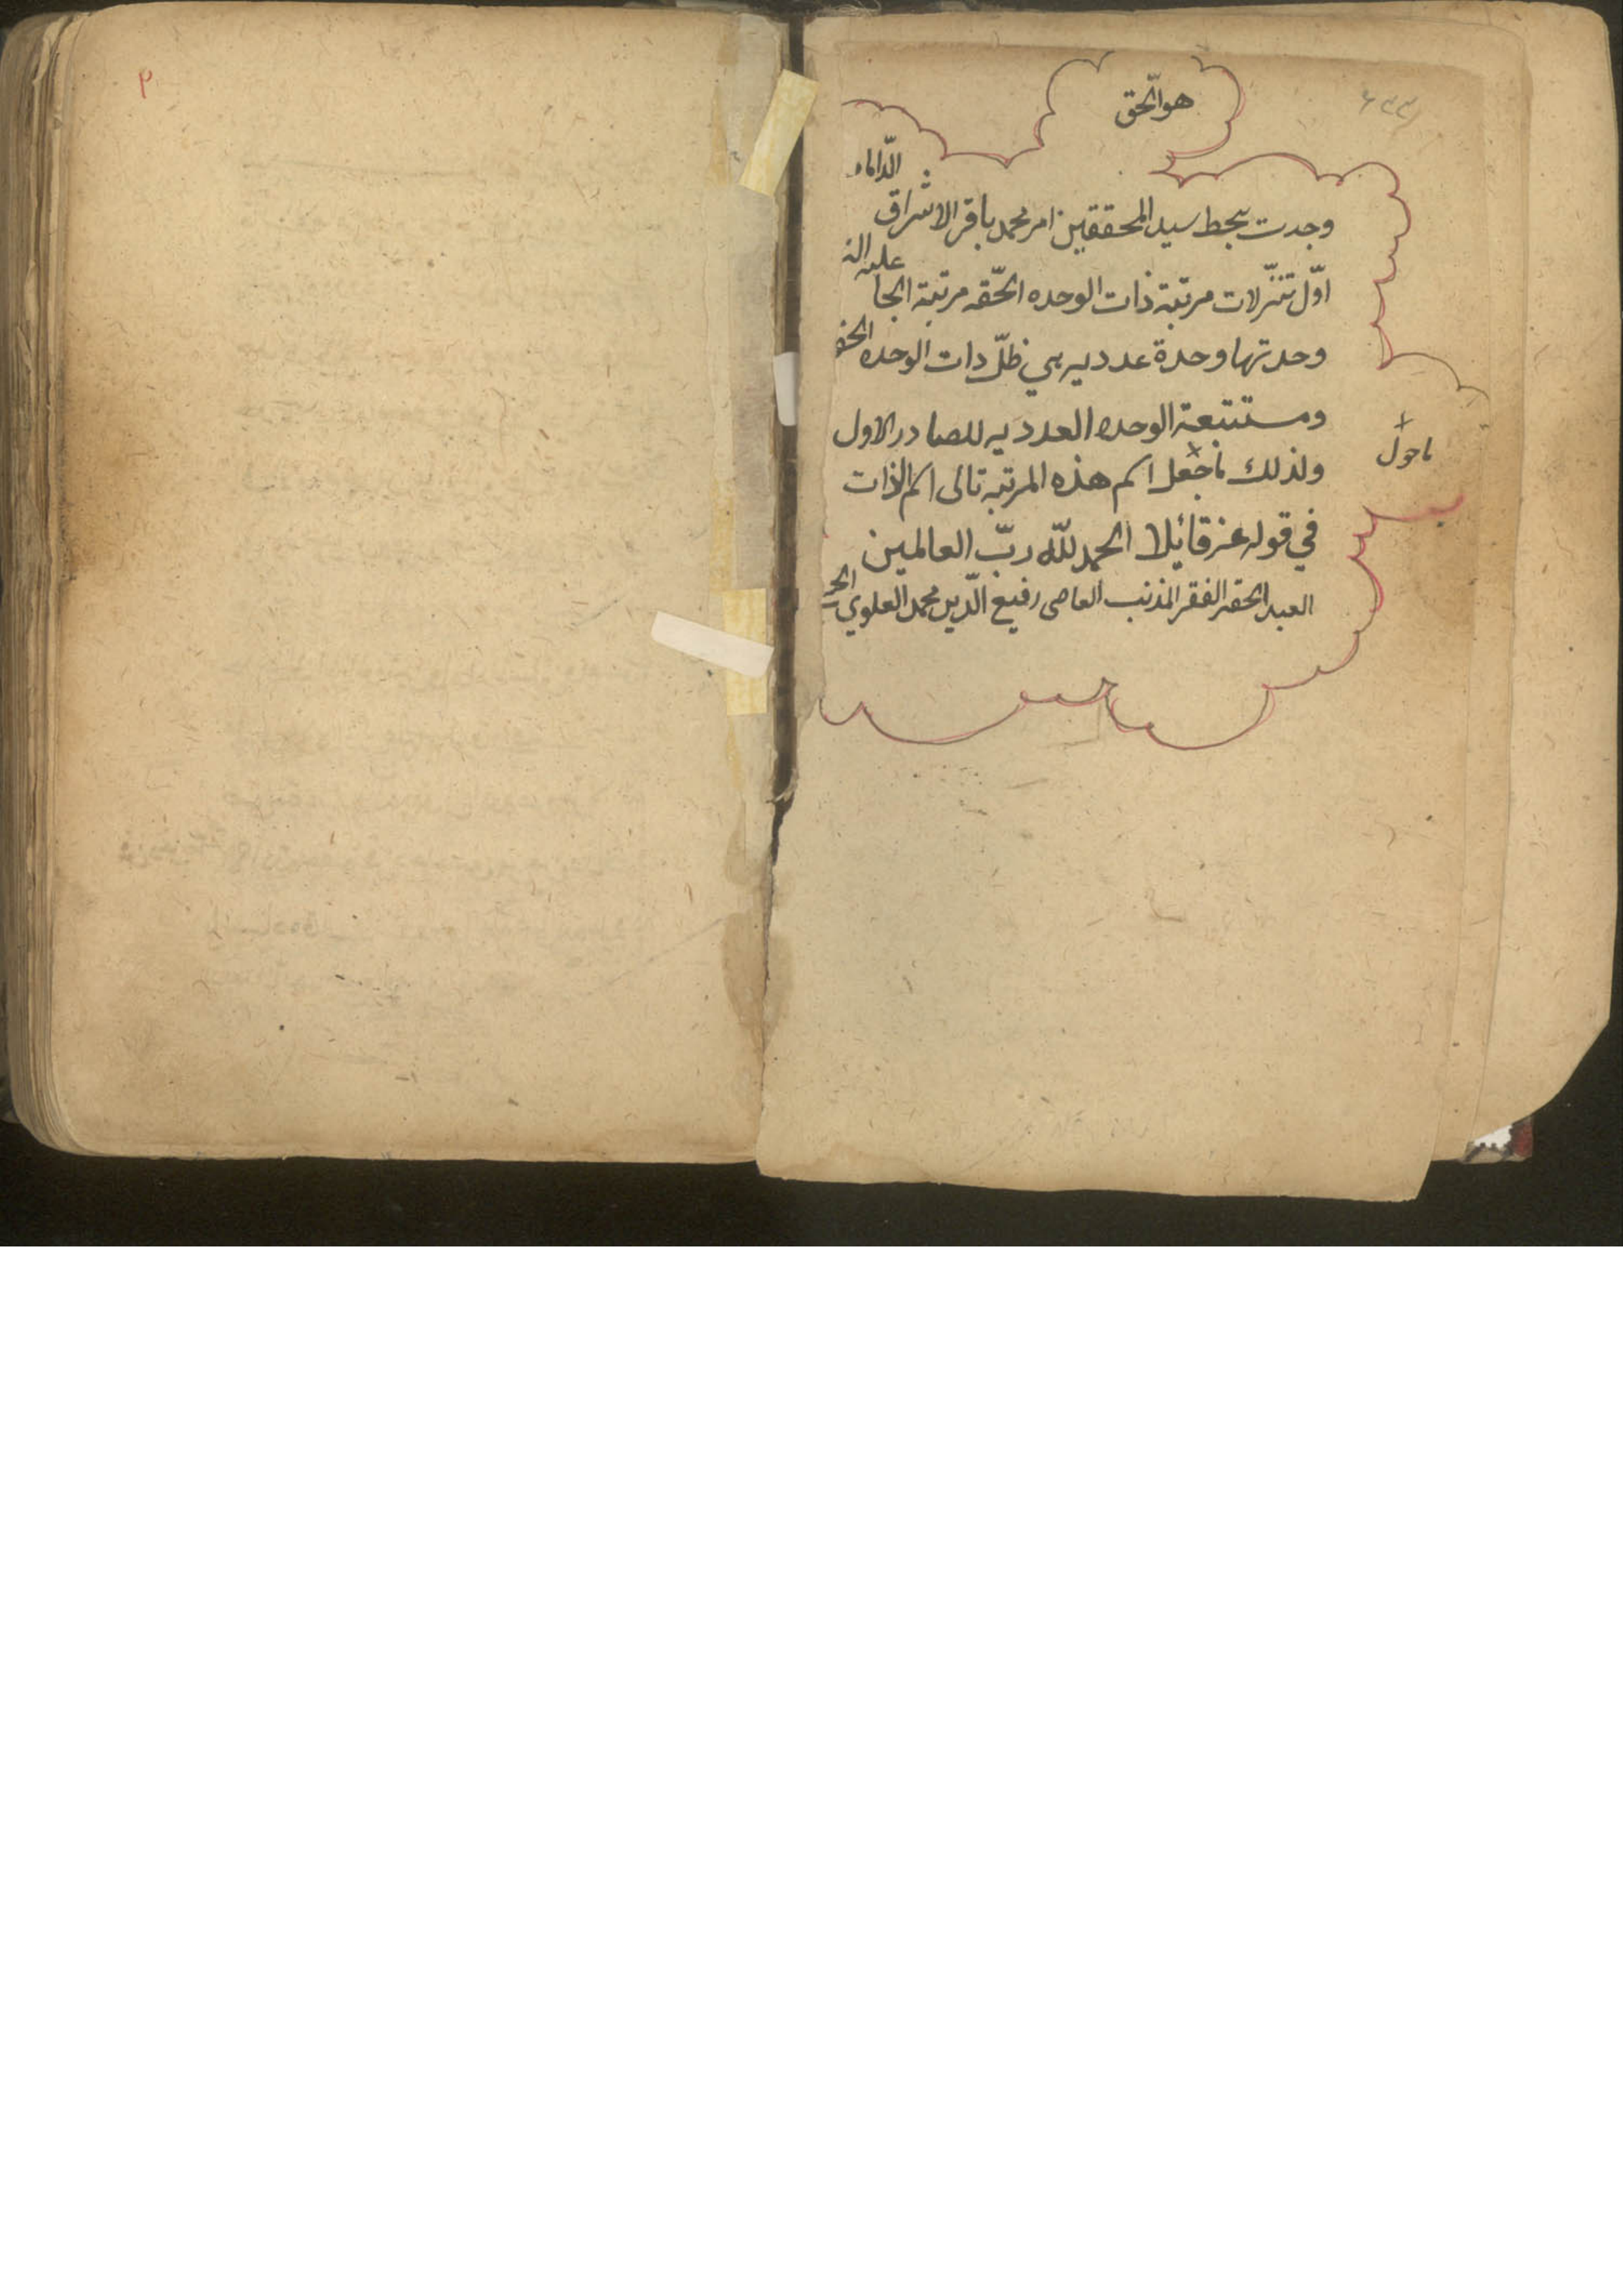 هو الحقّ
وجدت بخط سيد المحققين امير محمد باقر الاشراق الدّاماد
اوّل تنزّلات مرتبة ذات الوحده الحقّه مرتبة
وحدتها وحدة عدديه هي ظلّ ذات الوحده
ومستتبعة الوحده العدديه للصادر الاول
ولذلك ما جعل اسم هذه المرتبه تالى اسم الذات
في قوله عز قائلا الحمد للّه ربّ العالمين
العبد الحقير الفقير المذنب العاصى رفيع الدّين محمد العلوي